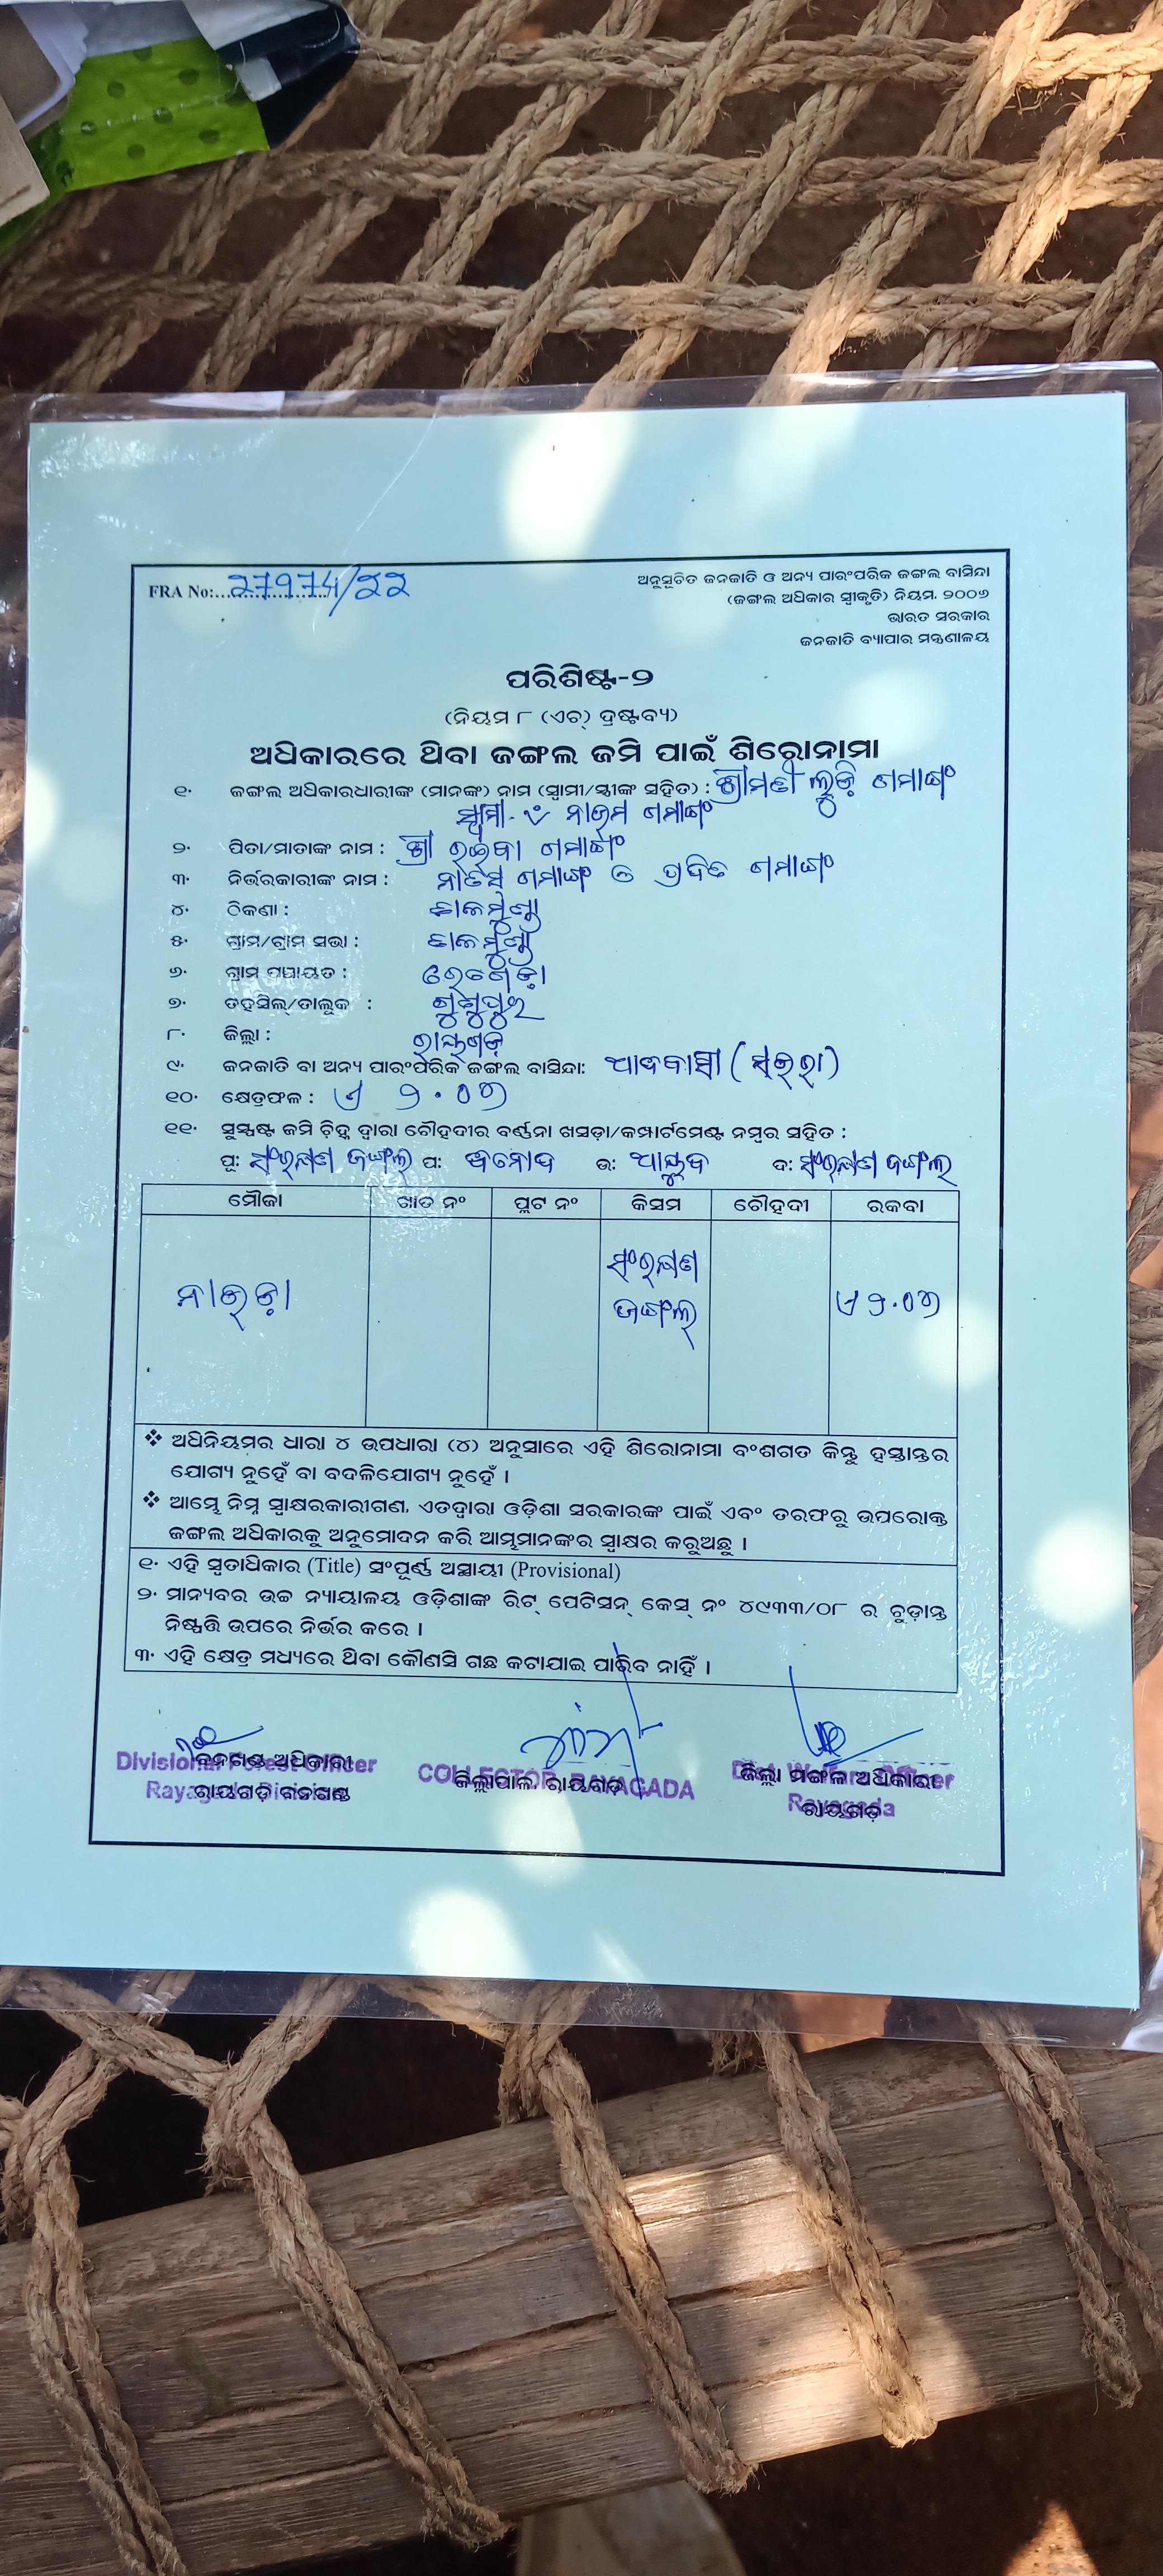 FRA No:....27974/22
ଅନୁସୂଚିତ ଜନଜାତି ଓ ଅନ୍ୟ ପାରଂପରିକ ଜଙ୍ଗଲ ବାସିନ୍ଦା
(ଜଙ୍ଗଲ ଅଧିକାର ସ୍ୱୀକୃତି) ନିୟମ, ୨୦୦୭
ଭାରତ ସରକାର
ଜନଜାତି ବ୍ୟାପାର ମନ୍ତ୍ରଣାଳୟ
ପରିଶିଷ୍ଟ-୨
(ନିୟମ ୮ (ଏଚ୍) ଦ୍ରଷ୍ଟବ୍ୟ)
ଅଧିକାରରେ ଥିବା ଜଙ୍ଗଲ ଜମି ପାଇଁ ଶିରୋନାମା
୧. ଜଙ୍ଗଲ ଅଧିକାରଧାରୀଙ୍କ (ମାନଙ୍କ) ନାମ (ସ୍ୱାମୀ/ସ୍ତ୍ରୀଙ୍କ ସହିତ) : ଶ୍ରୀମତୀ ଗମାଙ୍ଗ
ସ୍ୱାମୀ- ଗମାଙ୍ଗ
୨. ପିତା/ମାତାଙ୍କ ନାମ : ଶ୍ରୀ ଗମାଙ୍ଗ
୩. ନିର୍ଭରକାରୀଙ୍କ ନାମ : ଗମାଙ୍ଗ ଓ ଗମାଙ୍ଗ
୪. ଠିକଣା :
୫. ଗ୍ରାମ/ଗ୍ରାମ ସଭା :
୬. ଗ୍ରାମ ପଞ୍ଚାୟତ :
୭. ତହସିଲ୍/ତାଲୁକ : ଗୁଣୁପୁର
୮. ଜିଲ୍ଲା : ରାୟଗଡ଼
୯. ଜନଜାତି ବା ଅନ୍ୟ ପାରଂପରିକ ଜଙ୍ଗଲ ବାସିନ୍ଦା: ଆଦିବାସୀ (ସଉରା)
୧୦. କ୍ଷେତ୍ରଫଳ : ଏ ୨.୦୩
୧୧. ସୁସ୍ପଷ୍ଟ ଜମି ଚିହ୍ନ ଦ୍ୱାରା ଚୌହଦୀର ବର୍ଣ୍ଣନା ଖସଡ଼ା/କମ୍ପାର୍ଟମେଣ୍ଟ ନମ୍ବର ସହିତ :
ପୂ: ସଂରକ୍ଷଣ ଜଙ୍ଗଲ ପ: ଉ: ଦ: ସଂରକ୍ଷଣ ଜଙ୍ଗଲ
ମୌଜା ଖାତା ନଂ ପ୍ଲଟ ନଂ କିସମ ଚୌହଦୀ ରକବା
ସଂରକ୍ଷଣ
ଜଙ୍ଗଲ ଏ ୨.୦୩
❖ ଅଧିନିୟମର ଧାରା ୪ ଉପଧାରା (୪) ଅନୁସାରେ ଏହି ଶିରୋନାମା ବଂଶଗତ କିନ୍ତୁ ହସ୍ତାନ୍ତର
ଯୋଗ୍ୟ ନୁହେଁ ବା ବଦଳିଯୋଗ୍ୟ ନୁହେଁ ।
❖ ଆମ୍ଭେ ନିମ୍ନ ସ୍ୱାକ୍ଷରକାରୀଗଣ, ଏତଦ୍ୱାରା ଓଡ଼ିଶା ସରକାରଙ୍କ ପାଇଁ ଏବଂ ତରଫରୁ ଉପରୋକ୍ତ
ଜଙ୍ଗଲ ଅଧିକାରକୁ ଅନୁମୋଦନ କରି ଆମ୍ଭମାନଙ୍କର ସ୍ୱାକ୍ଷର କରୁଅଛୁ ।
୧. ଏହି ସ୍ୱତ୍ତାଧିକାର (Title) ସଂପୂର୍ଣ୍ଣ ଅସ୍ଥାୟୀ (Provisional)
୨. ମାନ୍ୟବର ଉଚ୍ଚ ନ୍ୟାୟାଳୟ ଓଡ଼ିଶାଙ୍କ ରିଟ୍ ପେଟିସନ୍ କେସ୍ ନଂ ୪୯୩୩/୦୮ ର ଚୁଡ଼ାନ୍ତ
ନିଷ୍ପତ୍ତି ଉପରେ ନିର୍ଭର କରେ ।
୩. ଏହି କ୍ଷେତ୍ର ମଧ୍ୟରେ ଥିବା କୌଣସି ଗଛ କଟାଯାଇ ପାରିବ ନାହିଁ ।
ବନଖଣ୍ଡ ଅଧିକାରୀ ଜିଲ୍ଲାପାଳ, ରାୟଗଡ଼ ଜିଲ୍ଲା ମଙ୍ଗଳ ଅଧିକାରୀ
Divisional Forest Officer COLLECTOR, RAYAGADA Dist. Welfare Officer
ରାୟଗଡ଼ ବନଖଣ୍ଡ ରାୟଗଡ଼
Rayagada Division Rayagada